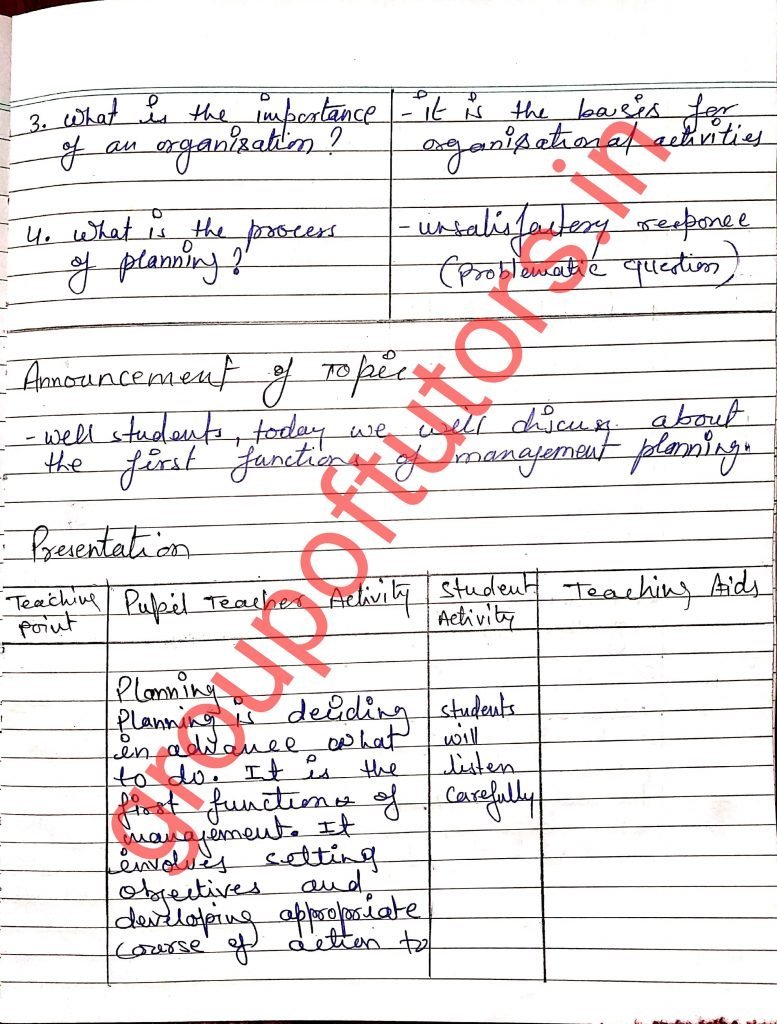 3. What is the importance
of an organisation?
- it is the basis for
organisational activities
4. What is the process
of planning?
- unsatisfactory responce
(problematic question)
Announcement of Topic
- well students, today we will discuss about
the first functions of management planning.
Presentation
Teaching
Point
Pupil Teacher Activity
Student
Activity
Teaching Aids
Planning
Planning is deciding
in advance what
to do. It is the
first function of
management. It
involves setting
objectives and
developing appropriate
course of action to
students
will
listen
carefully
groupoftutors.in